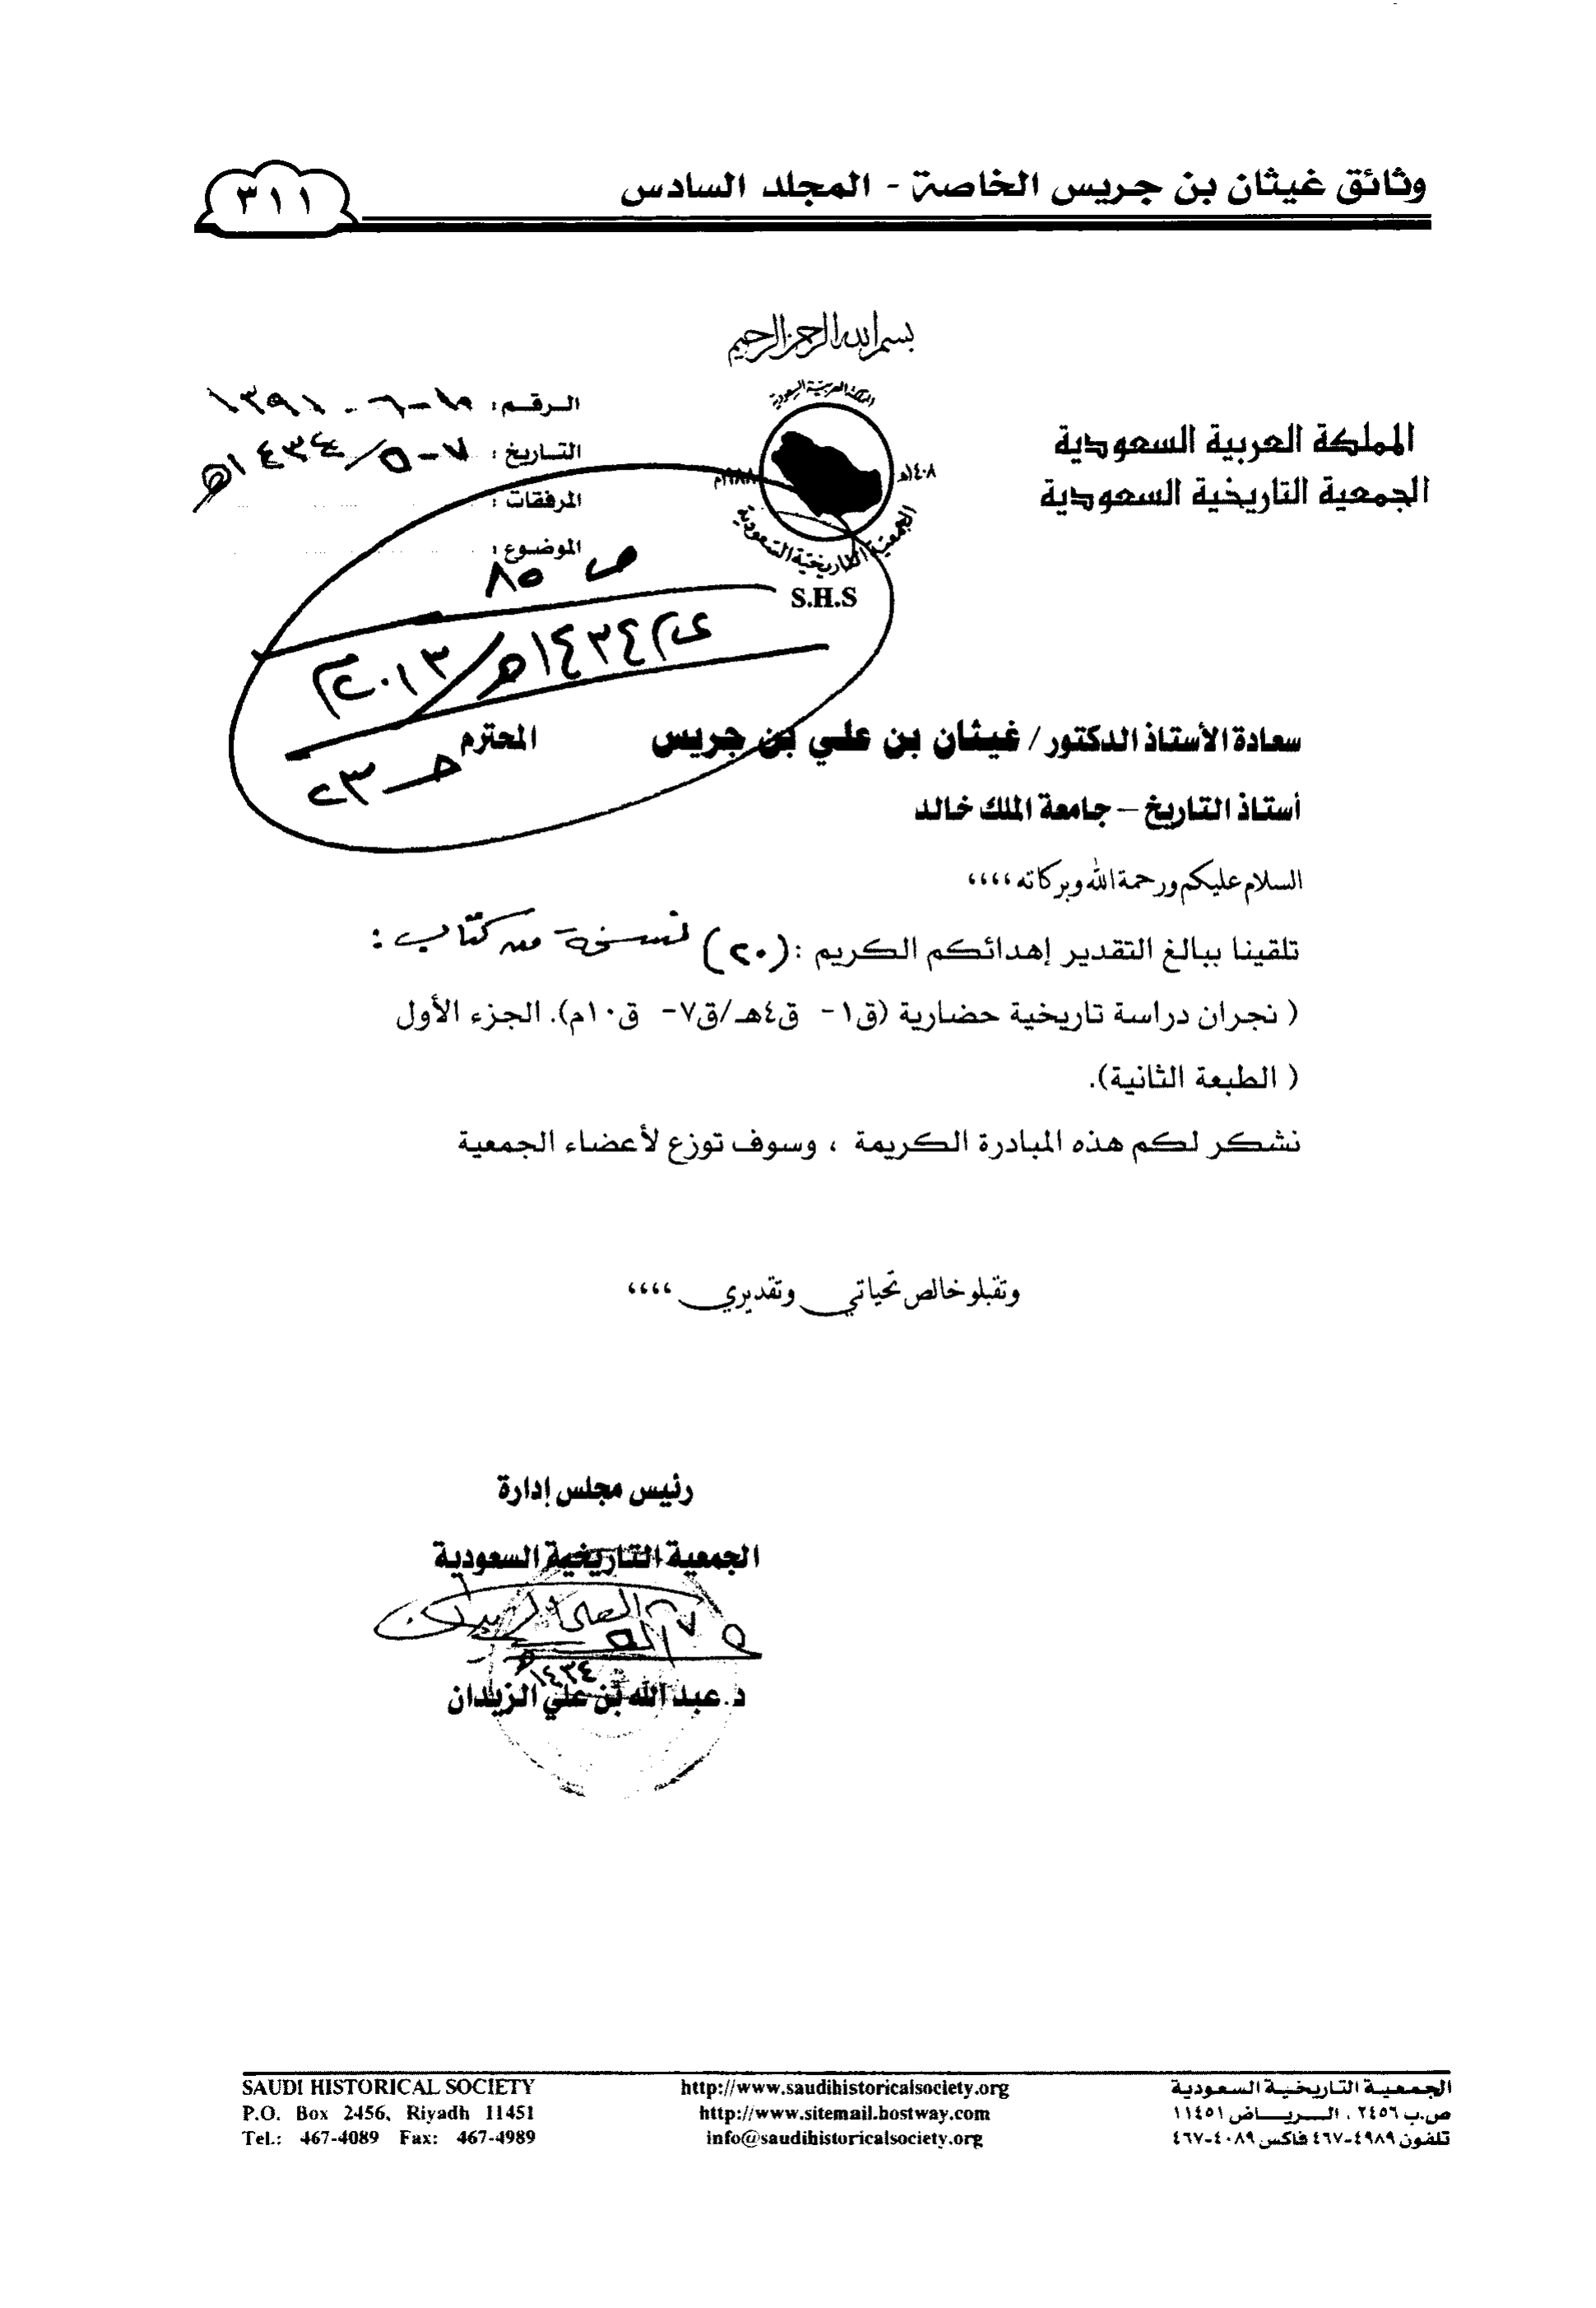 وثائق غيثان بن جريس الخاصة - المجلد السادس
٣١١
بسم الله الرحمن الرحيم
المملكة العربية السعودية
الجمعية التاريخية السعودية
المملكة العربية السعودية
١٤٠٨هـ
١٩٨٨م
الجمعية التاريخية السعودية
S.H.S
الرقم :
التاريخ : ٧-٥/١٤٣٤هـ
المرفقات :
الموضوع :
ص ٨٥
١٤٣٤هـ/٢٠١٣م
حـ ٢٣
سعادة الأستاذ الدكتور / غيثان بن علي بن جريس المحترم
أستاذ التاريخ – جامعة الملك خالد
السلام عليكم ورحمة الله وبركاته ،،،،
تلقينا ببالغ التقدير إهدائكم الكريم : (٢٠) نسخة من كتاب :
( نجران دراسة تاريخية حضارية (ق١- ق٤هـ/ق٧- ق١٠م). الجزء الأول
( الطبعة الثانية).
نشكر لكم هذه المبادرة الكريمة ، وسوف توزع لأعضاء الجمعية
وتقبلو خالص تحياتي وتقديري ،،،،
رئيس مجلس إدارة
الجمعية التاريخية السعودية
١٤٣٤هـ
د. عبد الله بن علي الزيدان
الجمعية التاريخية السعودية
ص.ب ٢٤٥٦ ، الرياض ١١٤٥١
تلفون ٤٩٨٩-٤٦٧ فاكس ٤٠٨٩-٤٦٧
http://www.saudihistoricalsociety.org
http://www.sitemail.hostway.com
info@saudihistoricalsociety.org
SAUDI HISTORICAL SOCIETY
P.O. Box 2456, Riyadh 11451
Tel.: 467-4089 Fax: 467-4989